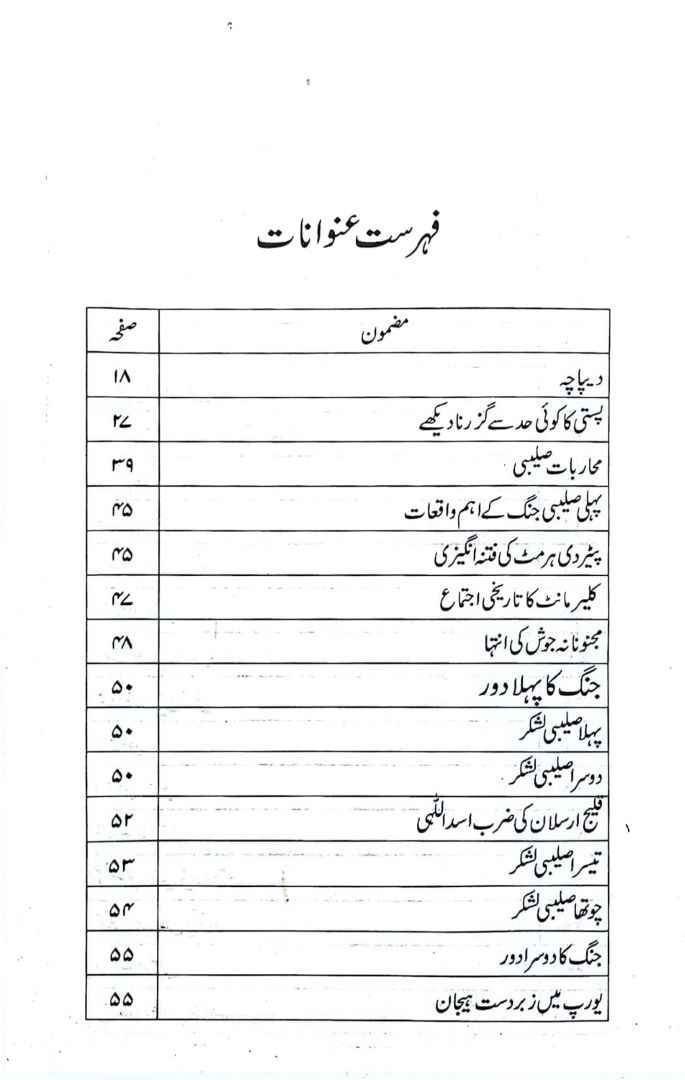 فہرست عنوانات
مضمون صفحہ
دیباچہ ۱۸
پستی کا کوئی حد سے گزرنا دیکھے ۲۷
محاربات صلیبی ۳۹
پہلی صلیبی جنگ کے اہم واقعات ۴۵
پیٹر دی ہرمٹ کی فتنہ انگیزی ۴۵
کلیرمانٹ کا تاریخی اجتماع ۴۷
مجنونانہ جوش کی انتہا ۴۸
جنگ کا پہلا دور ۵۰
پہلا صلیبی لشکر ۵۰
دوسرا صلیبی لشکر ۵۰
قلیج ارسلان کی ضرب اسد اللہی ۵۲
تیسرا صلیبی لشکر ۵۳
چوتھا صلیبی لشکر ۵۴
جنگ کا دوسرا دور ۵۵
یورپ میں زبردست ہیجان ۵۵